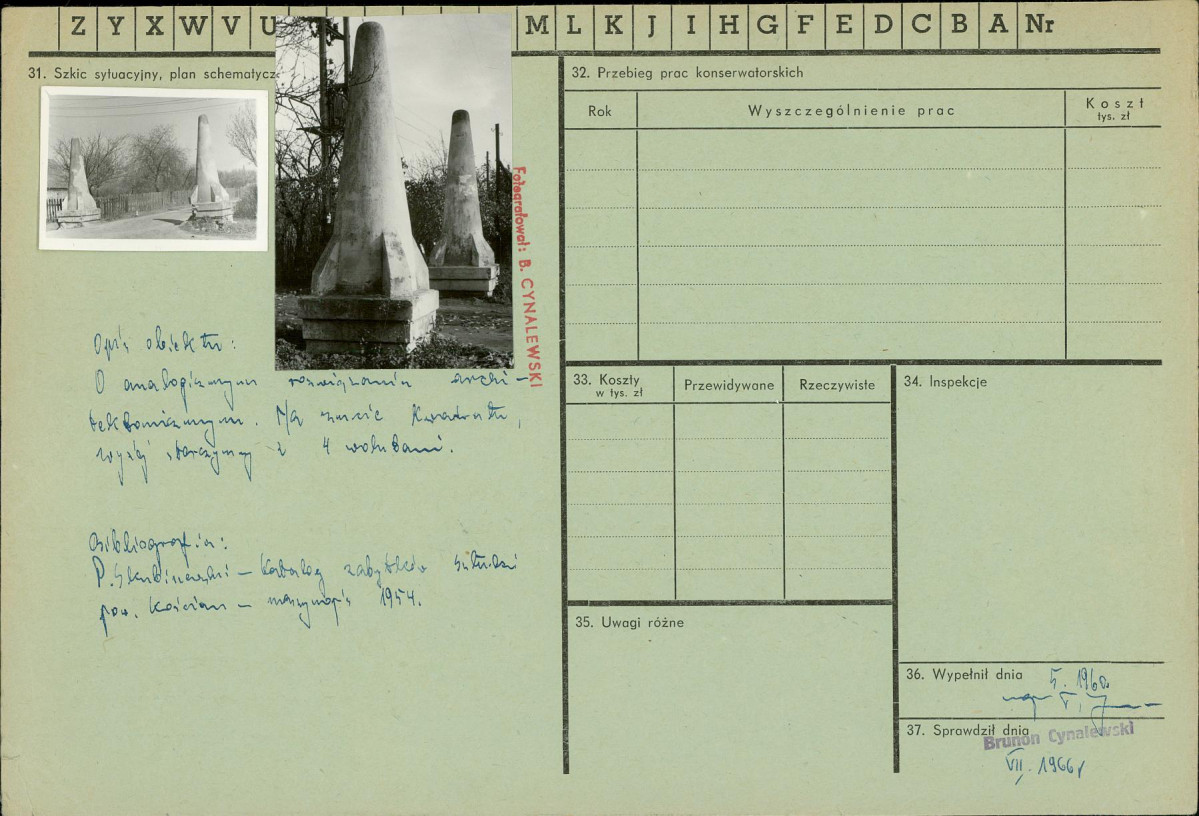 Z Y X W V U M L K J I H G F E D C B A Nr
31. Szkic sytuacyjny, plan schematycz
Fotografował: B. CYNALEWSKI
Opis obiektu:
O analogicznym rozwiązaniu archi-
tektonicznym. Na rzucie kwadratu,
wyżej z 4 wolutami.
Bibliografia:
P. Skubiszewski - Katalog zabytków sztuki
pow. Kościan - maszynopis 1954.
32. Przebieg prac konserwatorskich
Rok Wyszczególnienie prac Koszt
tys. zł
33. Koszty
w tys. zł
Przewidywane Rzeczywiste
34. Inspekcje
35. Uwagi różne
36. Wypełnił dnia 5. 1960
mgr
37. Sprawdził dnia
Brunon Cynalewski
VII. 1966r